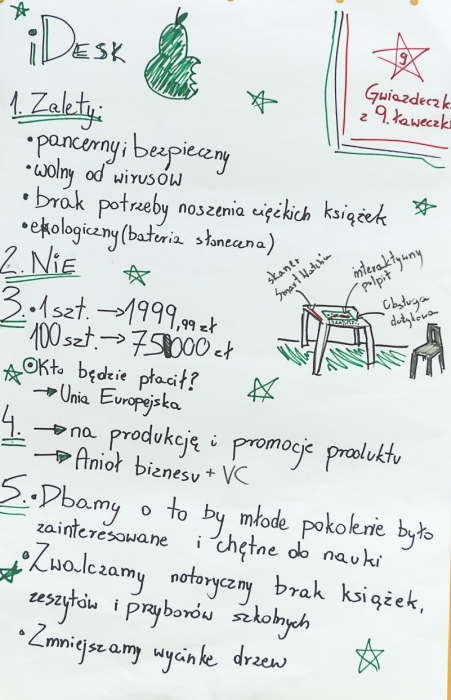 iDesk
9
Gwiazdeczki
z 9. ławeczki
1. Zalety:
• pancerny i bezpieczny
• wolny od wirusów
• brak potrzeby noszenia ciężkich książek
• ekologiczny (bateria słoneczna)
2. NiE
skaner
Smart Watchów
interaktywny
pulpit
Obsługa
dotykowa
3. • 1 szt. → 1999,99 zł
100 szt. → 75000 zł
Kto będzie płacił?
→ Unia Europejska
4. → na produkcję i promocje produktu
→ Anioł biznesu + VC
5. • Dbamy o to by młode pokolenie było
zainteresowane i chętne do nauki
• Zwalczamy notoryczny brak książek,
zeszytów i przyborów szkolnych
• Zmniejszamy wycinkę drzew